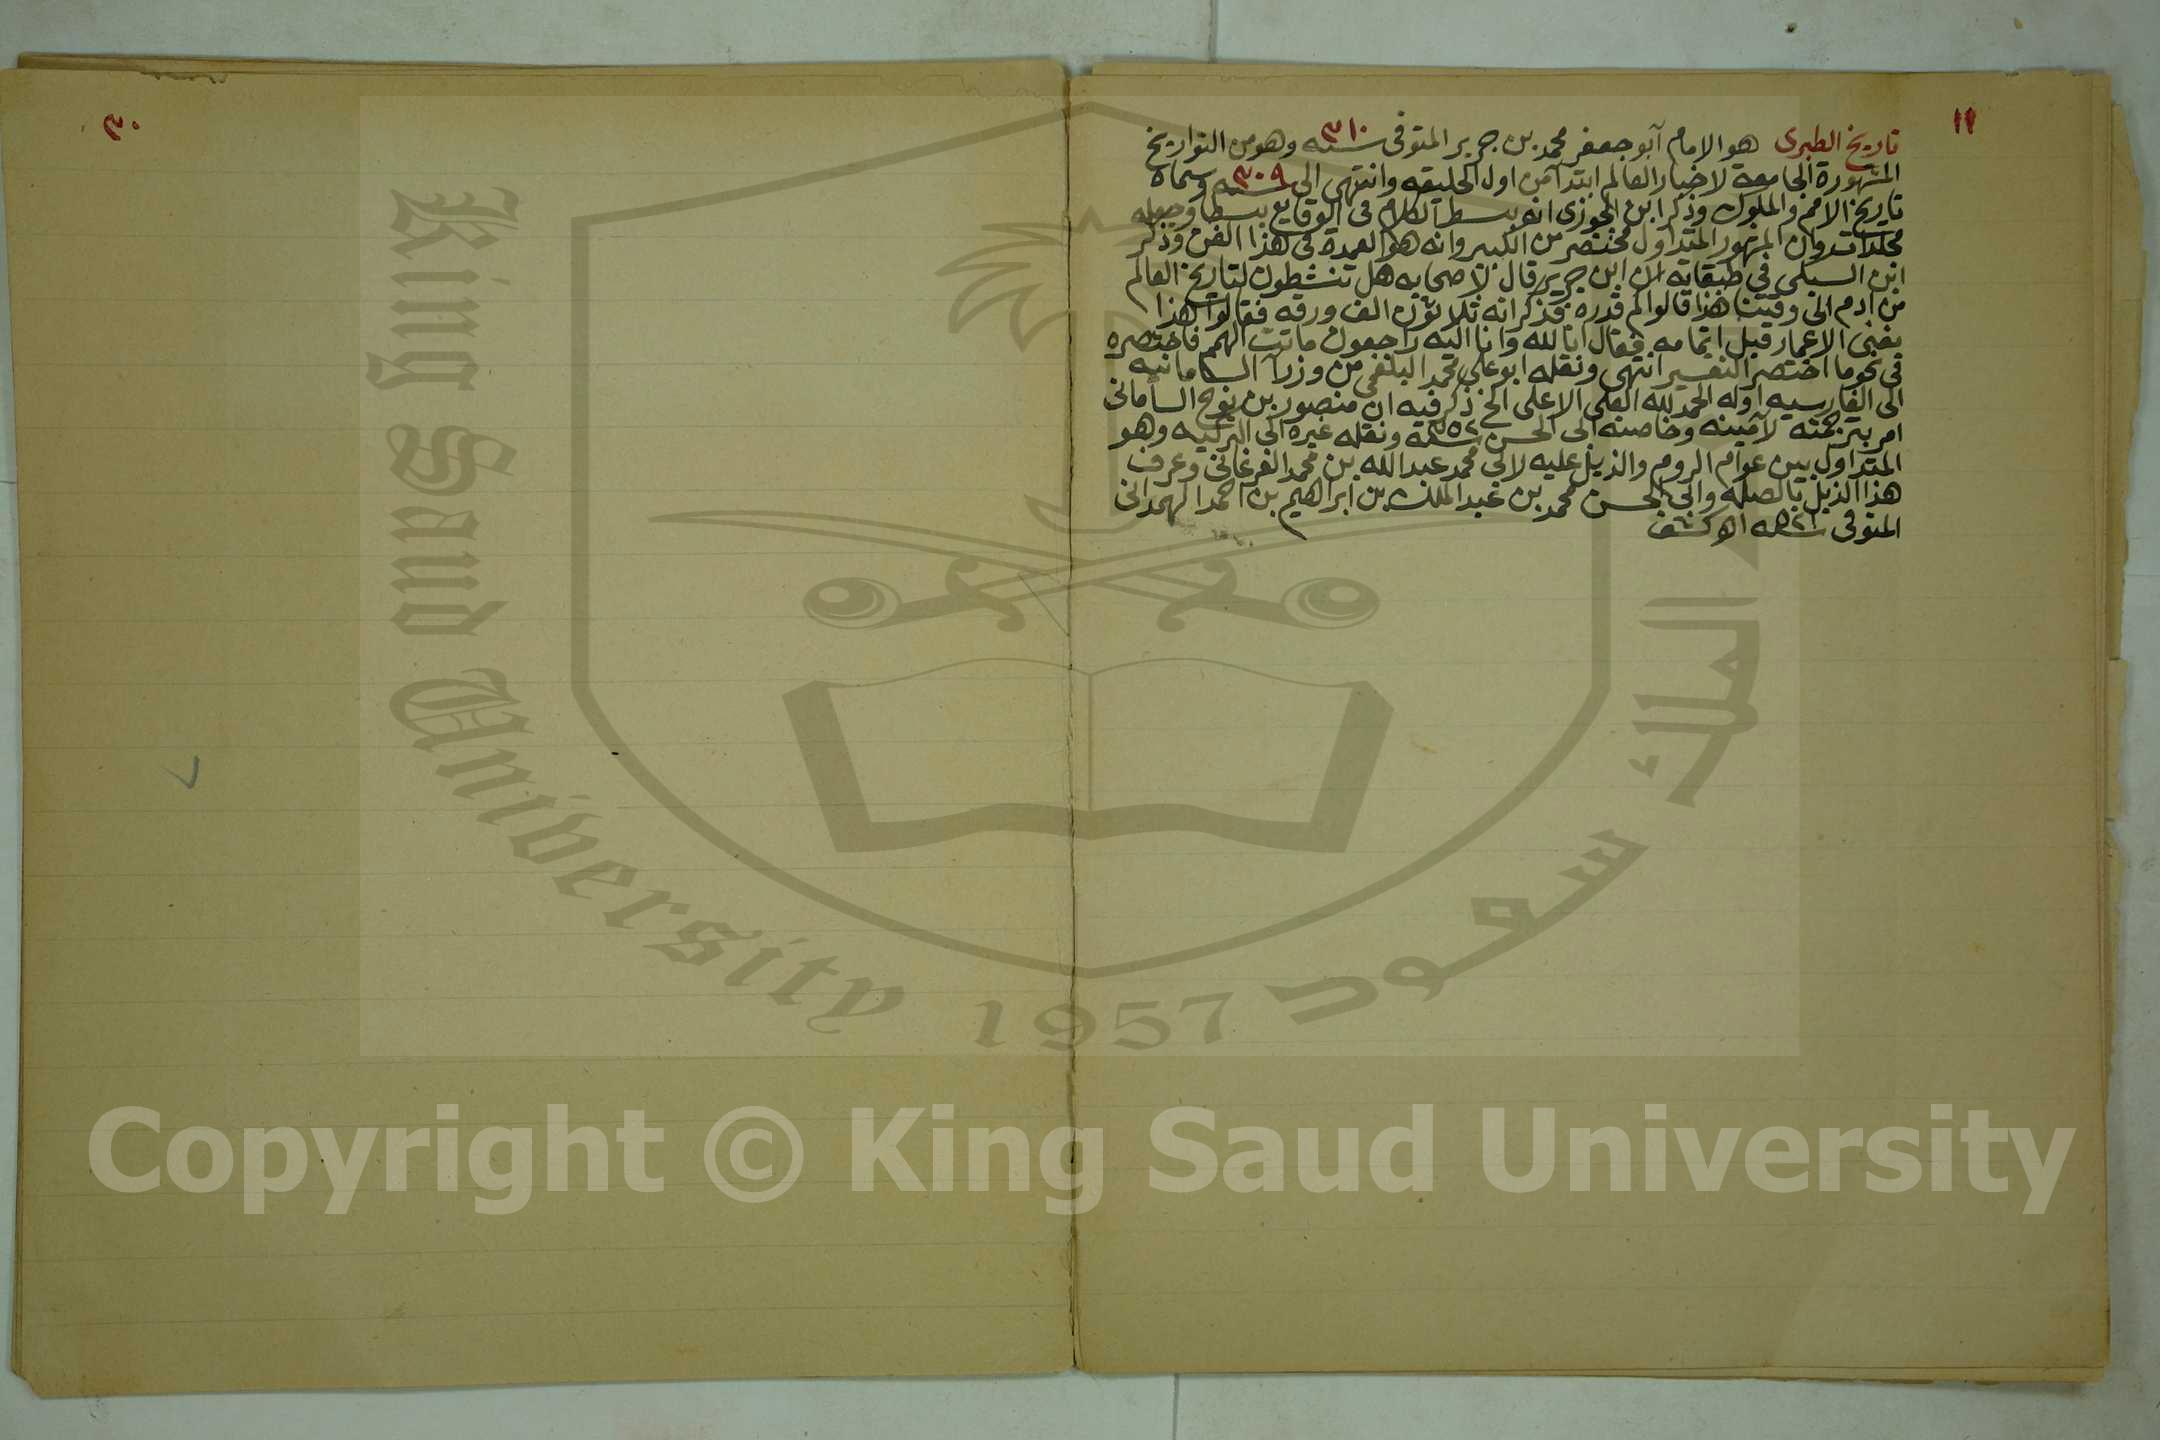 ١١
تاريخ الطبرى هو الامام أبو جعفر محمد بن جرير المتوفى سنه ٣١٠ وهو من التواريخ
المشهورة الجامعة لاخبار العالم ابتدأ من اول الخليقه وانتهى الى سنه ٣٠٩ وسماه
تاريخ الامم والملوك وذكر ابن الجوزى انه بسط الكلام فى الوقايع بسطا وجعله
مجلدات وان المشهور المتداول مختصر من الكبير وانه هو العمدة فى هذا الفن وذكر
ابن السبكى فى طبقاته ان ابن جرير قال لاصحابه هل تنشطون لتاريخ العالم
من ادم الى وقتنا هذا قالوا كم قدره فذكر انه ثلاثون الف ورقه فقالوا هذا
يفنى الاعمار قبل اتمامه فقال انا لله وانا اليه راجعون ماتت الهمم فاختصره
فى نحو ما اختصر التفسير انتهى ونقله ابو على محمد البلعمى من وزرآ السامانيه
الى الفارسيه اوله الحمد لله العلى الاعلى الخ ذكر فيه ان منصور بن نوح السامانى
امر بترجمته لأمينه وخاصته الى الحسن سنة ٣٥٢ ونقله غيره الى التركيه وهو
المتداول بين عوام الروم والذيل عليه لابى محمد عبد الله بن محمد الفرغانى وعرف
هذا الذيل بالصله والى الحسن محمد بن عبد الملك بن ابراهيم بن احمد الهمدانى
المتوفى سنه ٥٢١ اه كشف
٣٠
King Saud University 1957
الملك سعود
Copyright © King Saud University